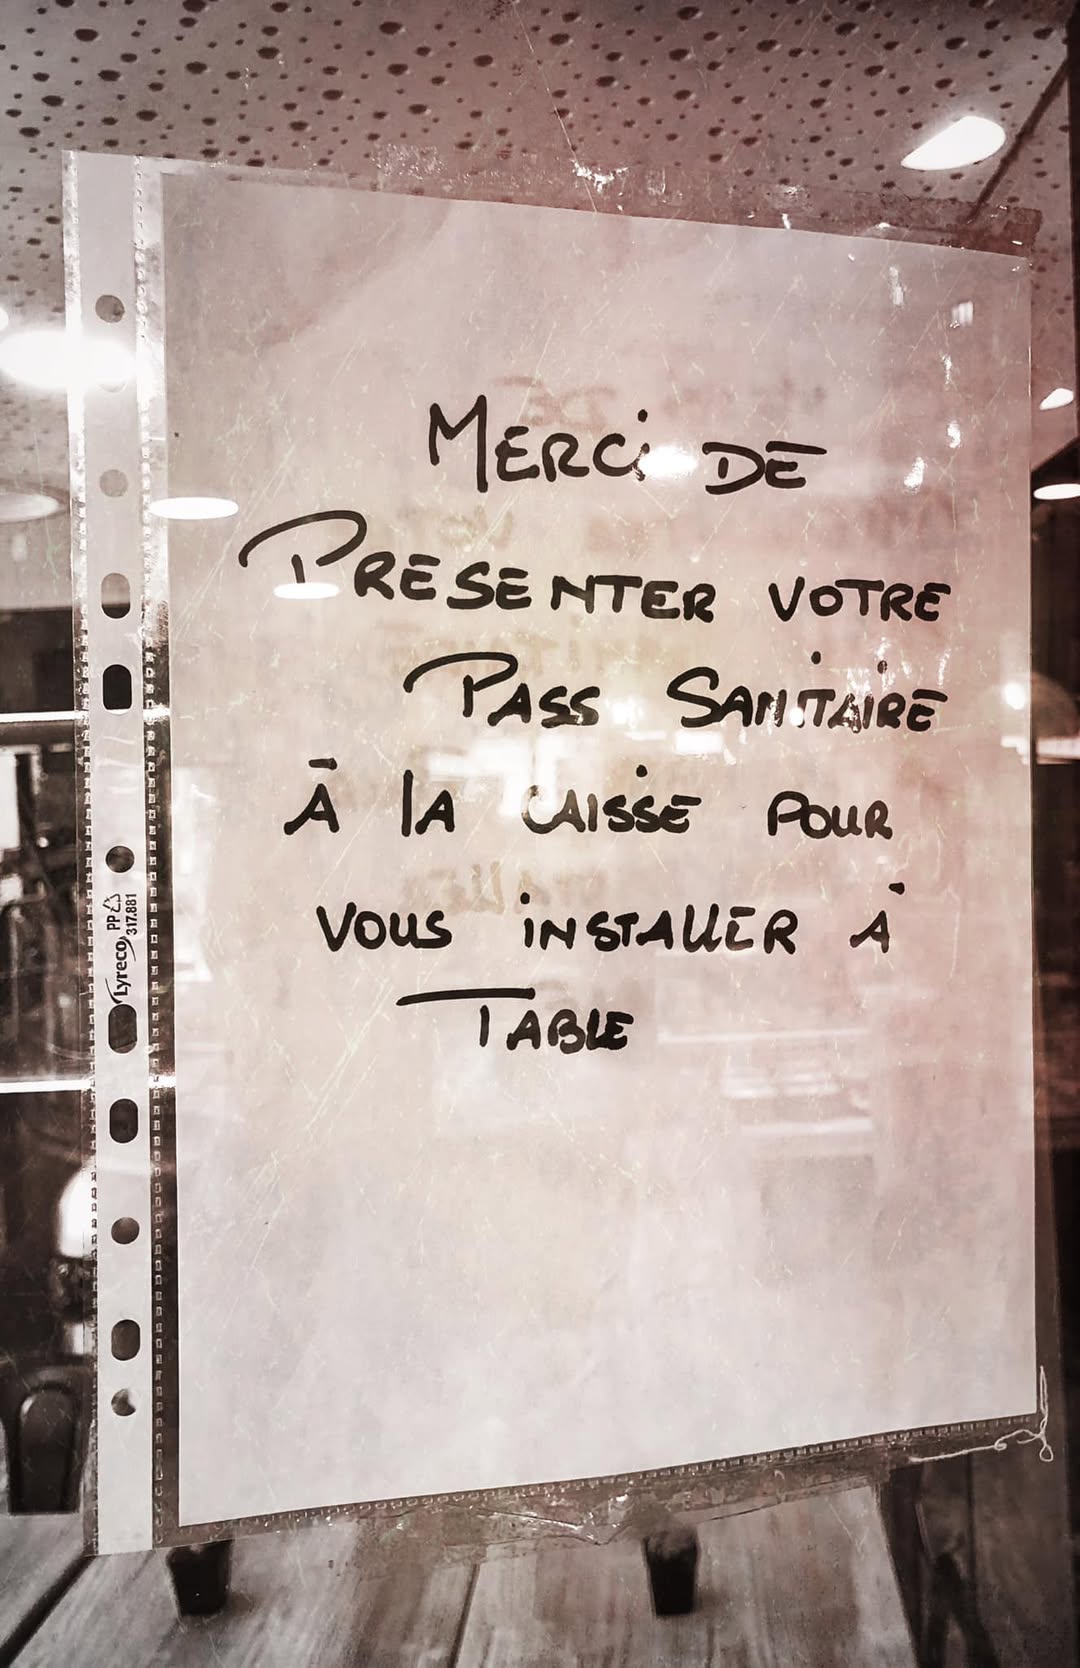 MERCi DE
PRESENTER VOTRE
PASS SANiTAiRE
À lA CAiSSE POUR
VOUS iNSTALLER À
TABLE
Lyreco PP 317.881